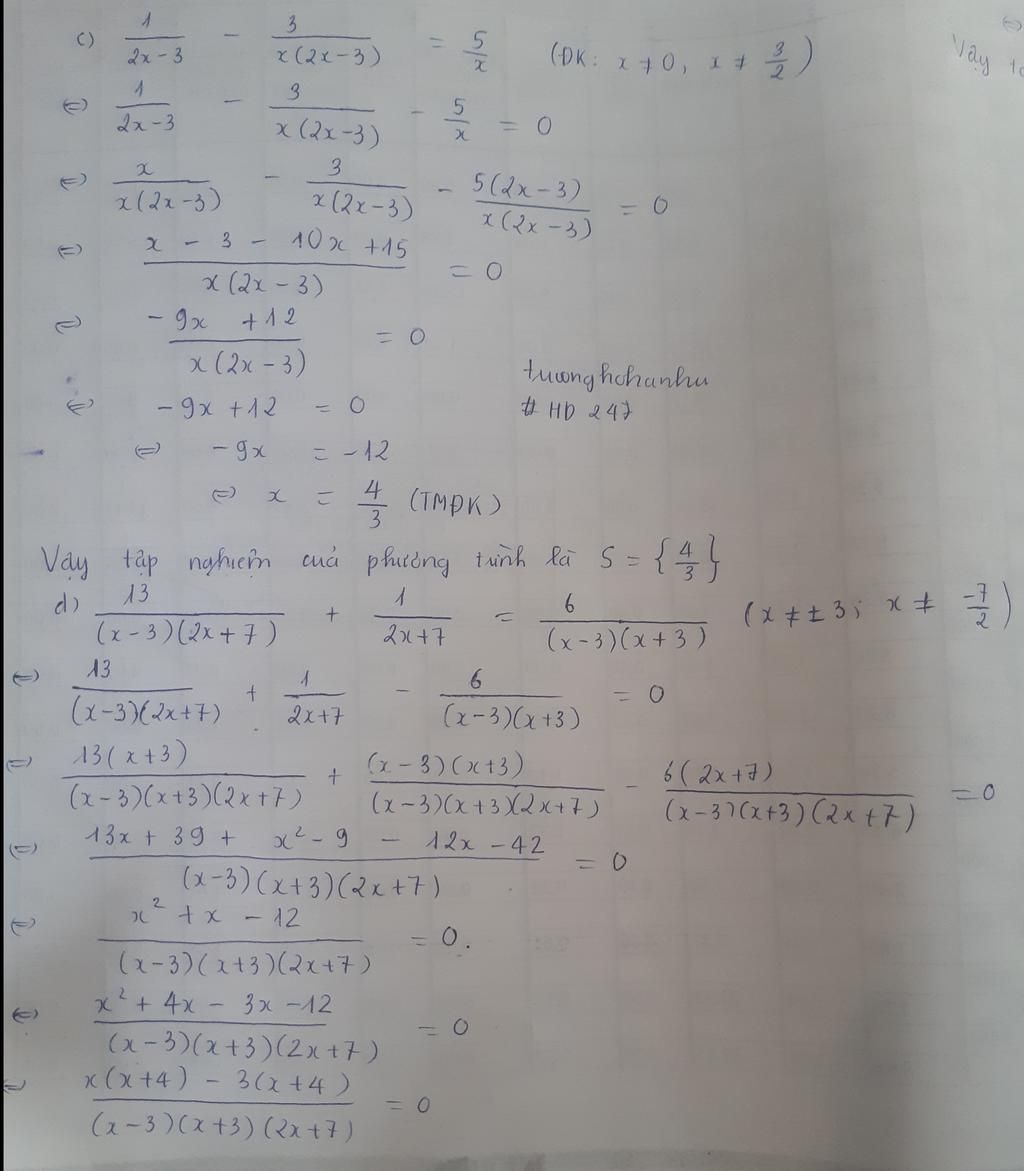 c) 1/(2x-3) - 3/(x(2x-3)) = 5/x (ĐK: x ≠ 0, x ≠ 3/2)
Vậy
⇔ 1/(2x-3) - 3/(x(2x-3)) - 5/x = 0
⇔ x/(x(2x-3)) - 3/(x(2x-3)) - 5(2x-3)/(x(2x-3)) = 0
⇔ (x - 3 - 10x + 15)/(x(2x-3)) = 0
⇔ (-9x + 12)/(x(2x-3)) = 0
tuonghohanhu
⇔ -9x + 12 = 0
# HD 247
⇔ -9x = -12
⇔ x = 4/3 (TMĐK)
Vậy tập nghiệm cuả phương trình là S = {4/3}
d) 13/((x-3)(2x+7)) + 1/(2x+7) = 6/((x-3)(x+3)) (x ≠ ± 3; x ≠ -7/2)
⇔ 13/((x-3)(2x+7)) + 1/(2x+7) - 6/((x-3)(x+3)) = 0
⇔ 13(x+3)/((x-3)(x+3)(2x+7)) + (x-3)(x+3)/((x-3)(x+3)(2x+7)) - 6(2x+7)/((x-3)(x+3)(2x+7)) = 0
⇔ (13x + 39 + x² - 9 - 12x - 42)/((x-3)(x+3)(2x+7)) = 0
⇔ (x² + x - 12)/((x-3)(x+3)(2x+7)) = 0.
⇔ (x² + 4x - 3x - 12)/((x-3)(x+3)(2x+7)) = 0
⇔ (x(x+4) - 3(x+4))/((x-3)(x+3)(2x+7)) = 0